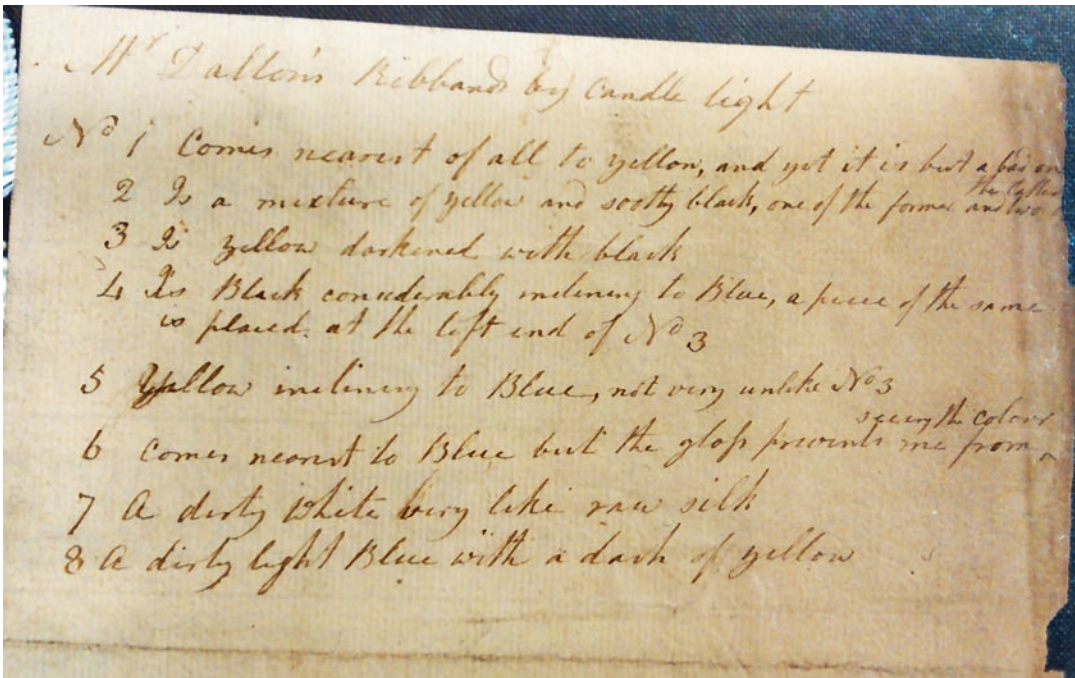 Mr Dalton's Ribbands by Candle light
No 1 Comes nearest of all to yellow, and yet it is but a bad one
the latter
2 Is a mixture of yellow and sooty black, one of the former and two
3 Is yellow darkened with black
4 Is Black considerably inclining to Blue, a piece of the same
is placed at the left end of No 3
5 Yellow inclining to Blue, not very unlike No 3
seeing the colour
6 Comes nearest to Blue but the gloss prevents me from
7 A dirty White very like raw silk
8 A dirty light Blue with a dash of yellow